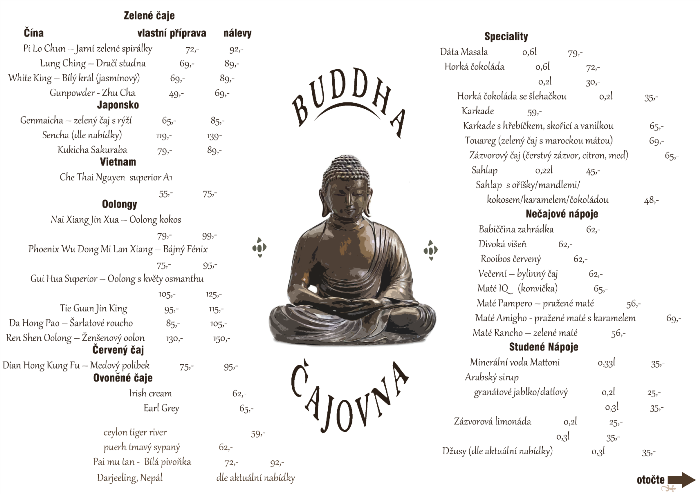 Zelené čaje
Čína vlastní příprava nálevy
Pi Lo Chun – Jarní zelené spirálky 72,- 92,-
Lung Ching – Dračí studna 69,- 89,-
White King – Bílý král (jasmínový) 69,- 89,-
Gunpowder - Zhu Cha 49,- 69,-
Japonsko
Genmaicha – zelený čaj s rýží 65,- 85,-
Sencha (dle nabídky) 119,- 139-
Kukicha Sakuraba 79,- 89,-
Vietnam
Che Thai Nguyen superior A1
55,- 75,-
Oolongy
Nai Xiang Jin Xua – Oolong kokos
79,- 99,-
Phoenix Wu Dong Mi Lan Xiang – Bájný Fénix
75,- 95,-
Gui Hua Superior – Oolong s květy osmanthu
105,- 125,-
Tie Guan Jin King 95,- 115,-
Da Hong Pao – Šarlatové roucho 85,- 105,-
Ren Shen Oolong – Ženšenový oolon 130,- 150,-
Červený čaj
Dian Hong Kung Fu – Medový polibek 75,- 95,-
Ovoněné čaje
Irish cream 62,
Earl Grey 65,-
ceylon tiger river 59,-
puerh tmavý sypaný 62,-
Pai mu tan - Bílá pivoňka 72,- 92,-
Darjeeling, Nepál dle aktuální nabídky
BUDDHA
ČAJOVNA
Speciality
Dáta Masala 0,6l 79,-
Horká čokoláda 0,6l 72,-
0,2l 30,-
Horká čokoláda se šlehačkou 0,2l 35,-
Karkade 59,-
Karkade s hřebíčkem, skořicí a vanilkou 65,-
Touareg (zelený čaj s marockou mátou) 69,-
Zázvorový čaj (čerstvý zázvor, citron, med) 65,
Sahlap 0,22l 45,-
Sahlap s oříšky/mandlemi/
kokosem/karamelem/čokoládou 48,-
Nečajové nápoje
Babiččina zahrádka 62,-
Divoká višeň 62,-
Rooibos červený 62,-
Večerní – bylinný čaj 62,-
Maté IQ (konvička) 65,-
Maté Pampero – pražené maté 56,-
Maté Amigho - pražené maté s karamelem 69,-
Maté Rancho – zelené maté 56,-
Studené Nápoje
Minerální voda Mattoni 0,33l 35,-
Arabský sirup
granátové jablko/datlový 0,2l 25,-
0,3l 35,-
Zázvorová limonáda 0,2l 25,-
0,3l 35,-
Džusy (dle aktuální nabídky) 0,3l 35,-
otočte